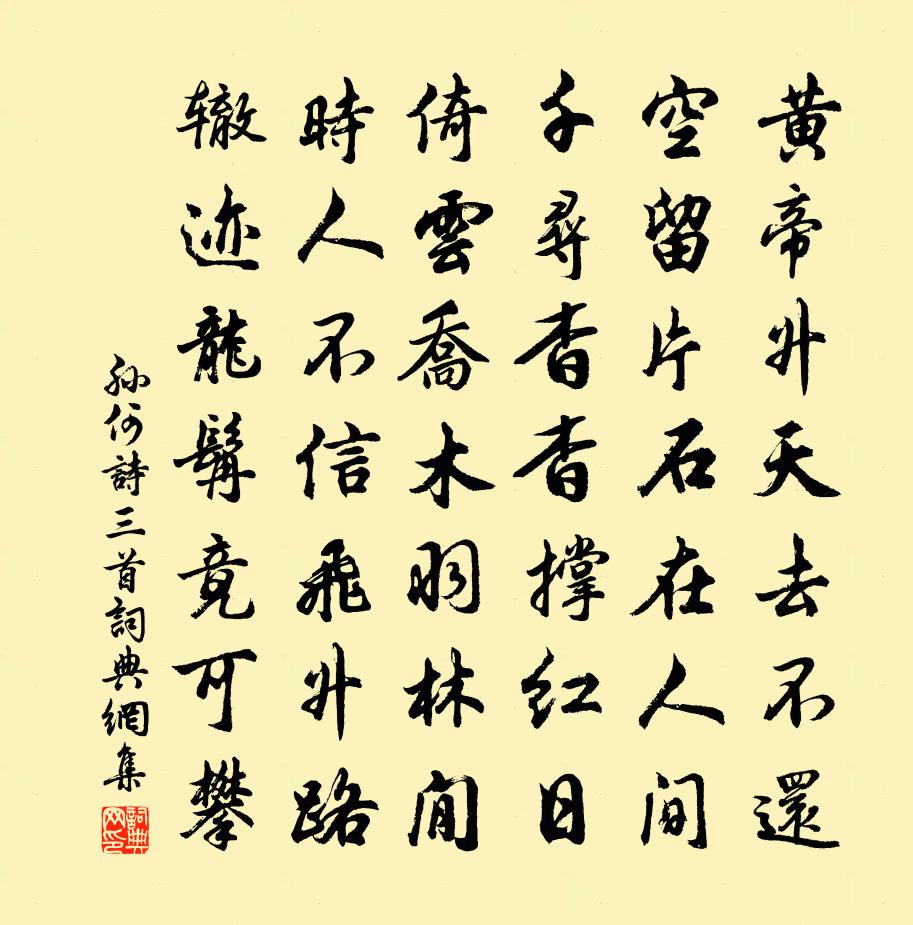 黃帝升天去不還
空留片石在人間
千尋杳杳撑红日
倚雲喬木羽林閒
時人不信飛升路
辙迹龍髯竟可攀
孙何詩三首詞典網集
詞典网印